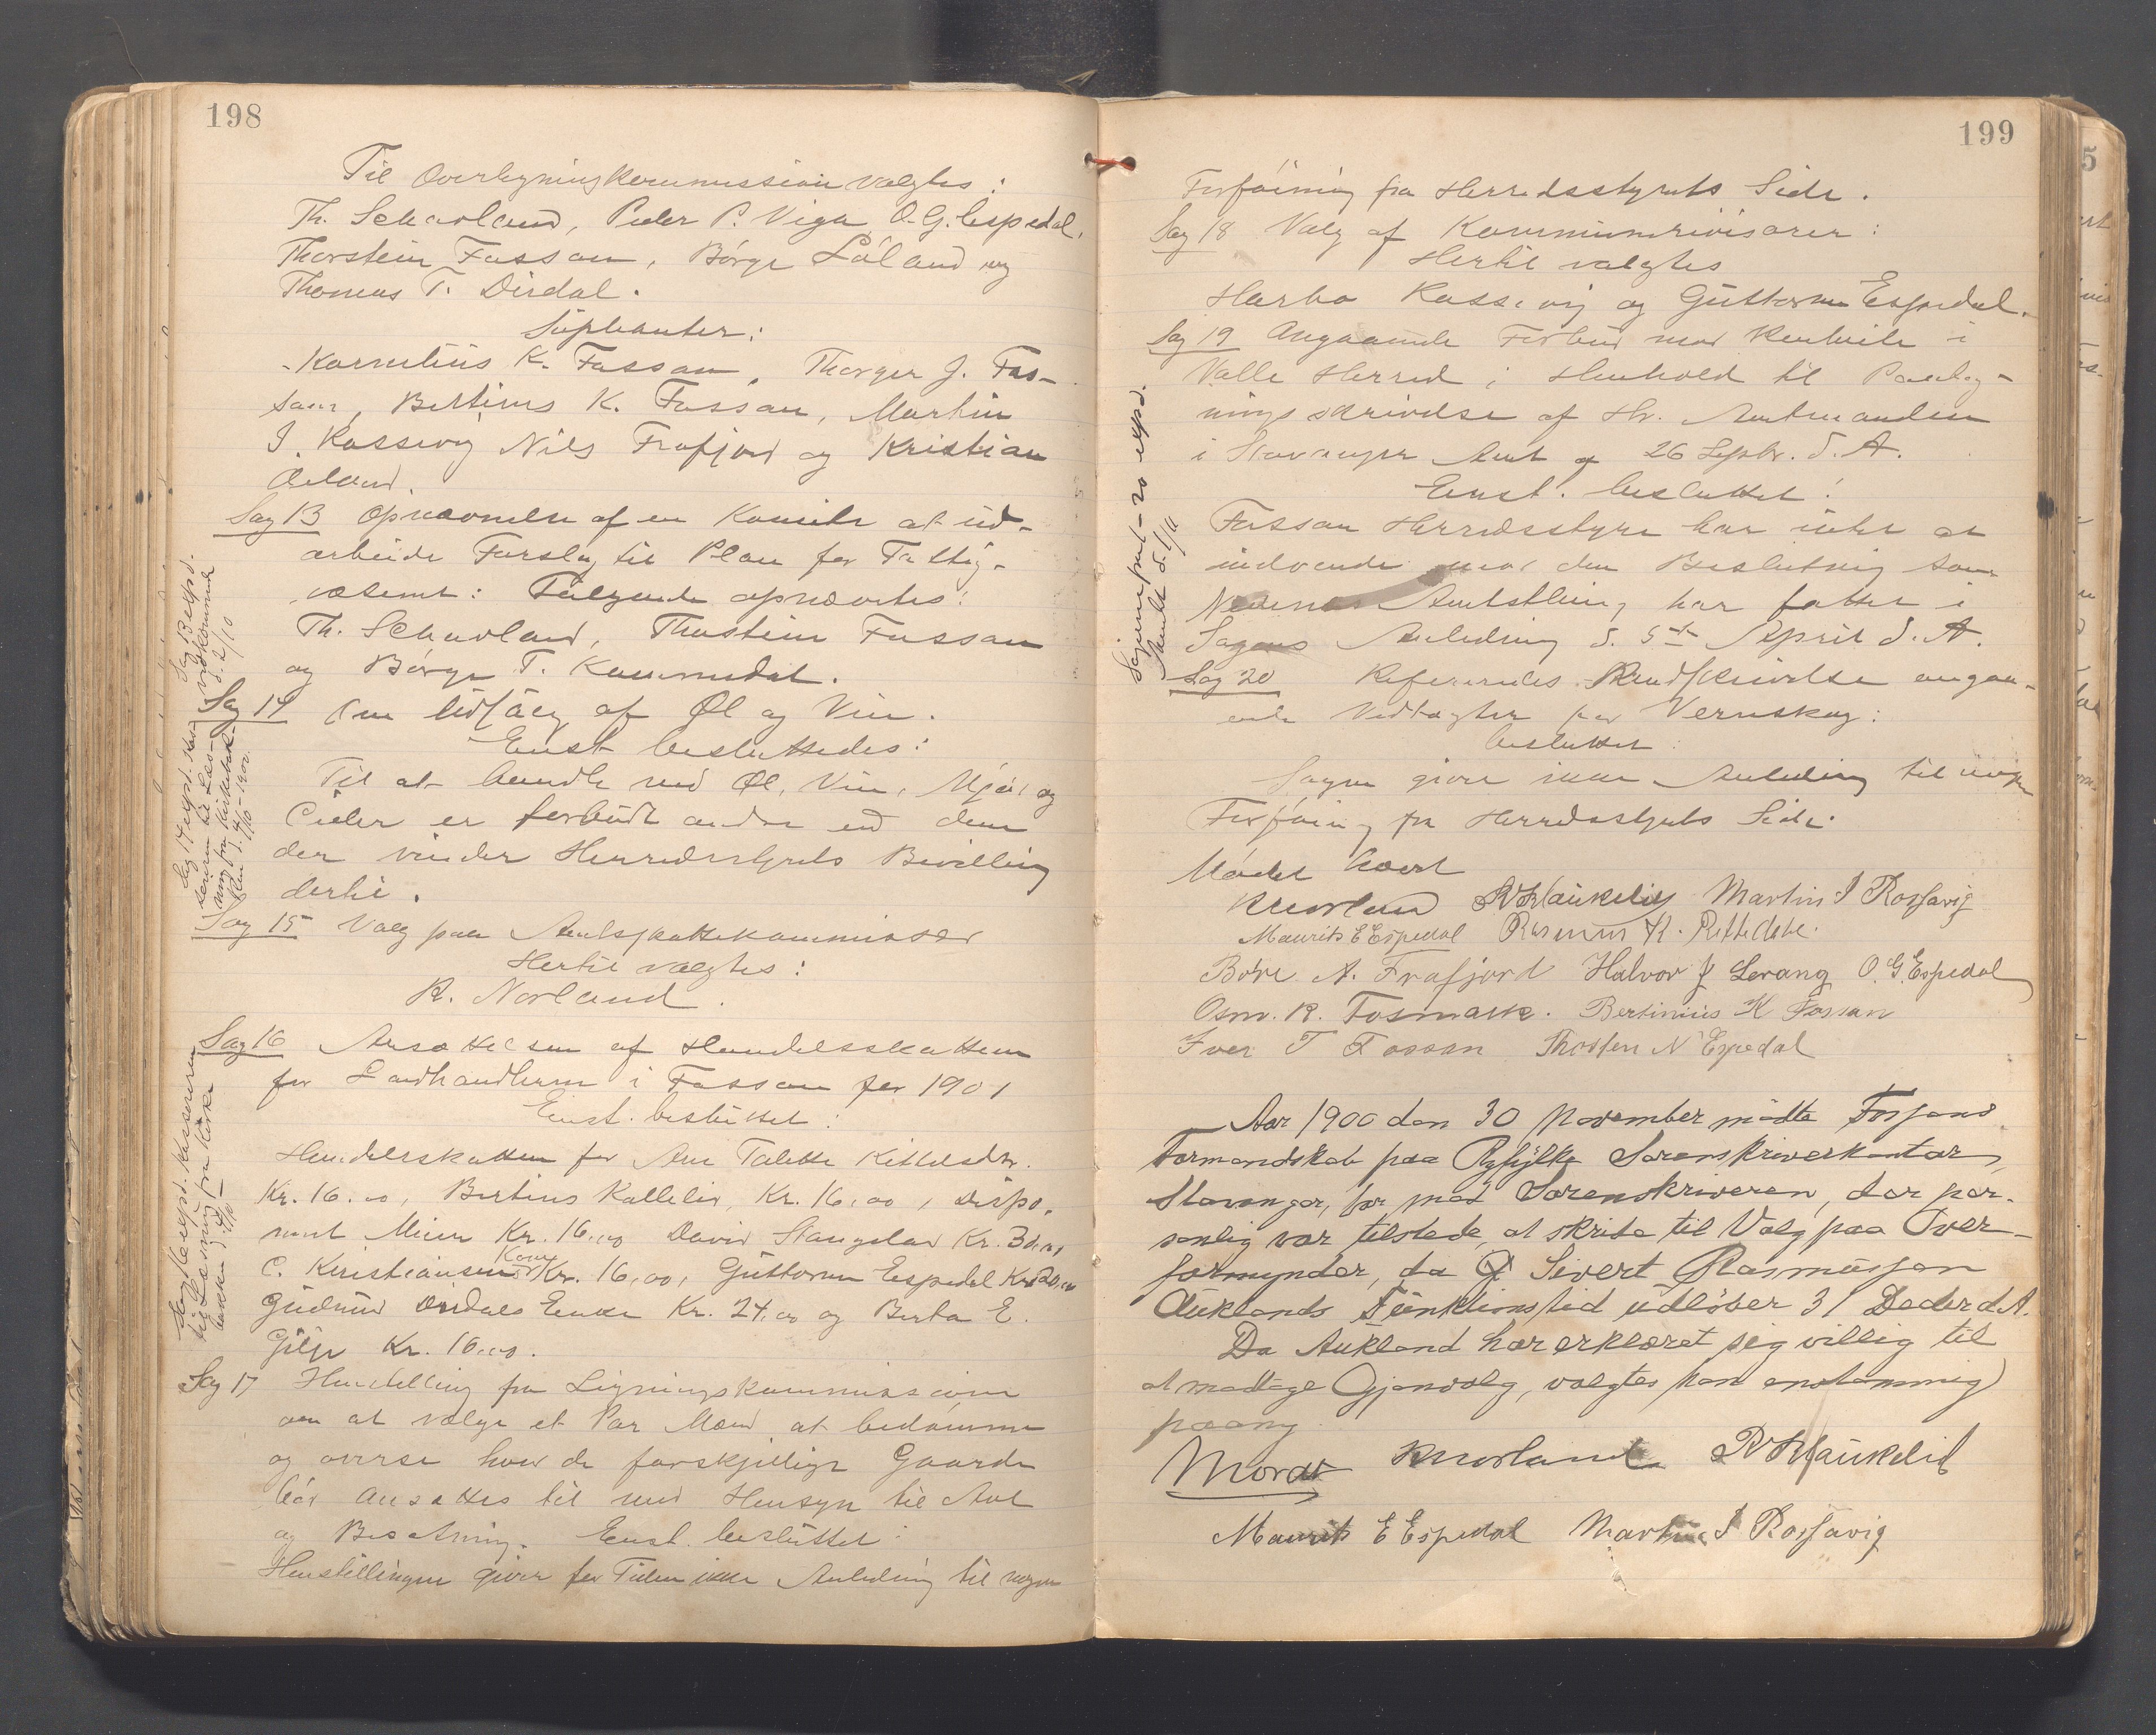 198
Til Overligningskommission valgtes:
Th. Schavland, Peder P. Viga, O. G. Espedal,
Thorstein Fossan, Børge Løland og
Thomas T. Dirdal.
Suplianter:
Kornelius K. Fossan, Thorger J. Fos-
san, Bertinus K. Fossan, Martin
I. Rossavig Nils Frafjord og Kristian
Øiland.
Sag 13 Opnævnelse af en Komite at ud-
arbeide Forslag til Plan for Fattig-
væsenet: Følgende opnævntes:
Th. Schavland, Thorstein Fossan
og Børge T. Kommedal.
Sag 14 Om Udsalg af Øl og Vin.
Enst. besluttedes:
Til at handle med Øl, Vin, Mjød og
Cider er forbudt andre end dem
der vinder Herredsstyrets Bevilling
dertil.
Sag 15 Valg paa Amtsskattekommissær
Hertil valgtes:
R. Norland.
Sag 16 Ansættelsen af Handelsskatten
for Landhandlerne i Fossan for 1901
Enst. besluttet:
Handelsskatten for Ane Talette Kittelsdtr.
Kr. 16.00, Bertinus Kallelid, Kr. 16,00, Dispo-
nent Meier Kr. 16,00 David Stangeland Kr.
C. Kristiansen Kone Kr. 16,00, Guttorm Espedal Kr. 20,00
Gudmund Dirdals Enke Kr. 24,00 og Berta E.
Gilje Kr. 16.00.
Sag 17 Henstilling fra Ligningskommissionen
om at vælge et Par Mænd at bedømme
og overse hvad de forskjellige Gaarde
bør ansættes til med Hensyn til Avl
og Besætning. Enst. besluttet:
Henstillingen giver for Tiden ikke Anledning til nogen
Sag 13 expd.
vedkommende
d. 2/10
Sag 14 expd. Kas-
sereren til Læs-
ning fra Kirkebak-
ken d. 4/10-1900
Sag 16 expd. Kassereren
til Læsning fra Kirke
bakken d. 4/10
199
Forføining fra Herredsstyrets Side.
Sag 18 Valg af Kommunerivisorer:
Hertil valgtes
Harbo Rossavig og Guttorm Espedal.
Sag 19 Angaaende Forbud mod Renbeite i
Valle Herred i Henhold til Paateg-
ningsskrivelse af Hr. Amtmanden
i Stavanger Amt af 26 Septbr. d. A.
Enst. besluttet:
Fossan Herredsstyre har intet at
indvende mod den Beslutning som
Nedenes Amtsthing har fattet i
Sagens Anledning d. 5te April d. A.
Sag 20 Refereredes Rundskrivelse angaa-
ende Vedtægter for Vernskog:
besluttet:
Sagen giver ikke Anledning til nogen
Forføining fra Herredsstyrets Side.
Mødet hævet
RNorland RVHaukelid Martin I Rossavig
Maurits E Espedal Rasmus K. Rettedal.
Børe A. Frafjord Halvor J Levang O. G. Espedal
Osm. R. Fosmark. Bertinius K Fossan
Iver T Fossan Thosten N Espedal
Aar 1900 den 30 November mødte Fossans
Formandskab paa Ryfylke Sorenskriverkontor,
Stavanger, for, med Sorenskriveren, der per-
sonlig var tilstede, at skride til Valg paa Over-
formynder, da Sivert Rasmussen
Auklands Funktionstid udløber 31 Decbr d. A.
Da Aukland har erklæret sig villig til
at modtage Gjenvalg, valgtes han enstemmig
paany
RNorland RVHaukelid
Maurits E Espedal Martin I Rossavig